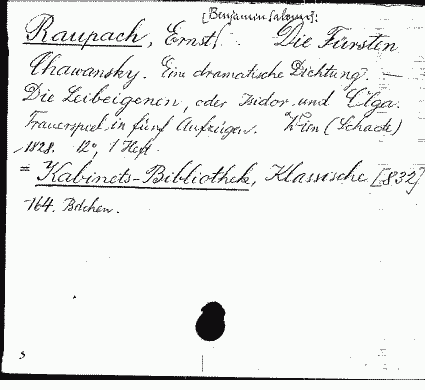 [Benjamin Salomo]:
Raupach, Ernst. Die Fürsten
Chawansky. Ein dramatische Dichtung. —
Die Leibeigenen, oder Isidor und Olga.
Trauerspiel in fünf Aufzügen. Wien (Schade)
1828. 12°. 1 Heft.
= Kabinets-Bibliothek, Klassische [832]
164. Bdchen.